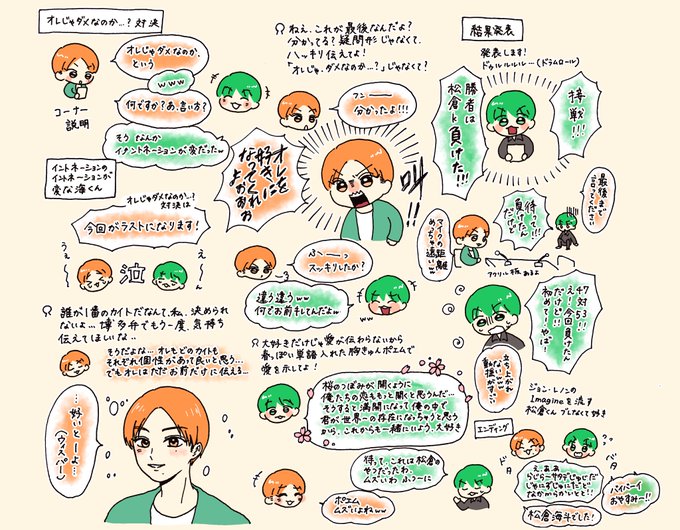 オレじゃダメなのか…？対決
オレじゃダメなのか、
という
www
何ですか？あ、言い方？
そう なんか
イノントネーションが変だったw
コーナー
説明
イントネーションの、
イントネーションが
変な海くん
オレじゃダメなのか…?
対決は
今回がラストになります!
うぇーん
泣
えーん
誰が1番のカイトだなんて、私、決められ
ないよ… 博多弁でもう一度、気持ち
伝えてほしいな..
そうだよな… オレもどのカイトも
それぞれ個性があって良いと思う…
でもオレはただお前だけに伝える…
…好いとーよ…
(ウィスパー)
ねぇ、これが最後なんだよ?
分かってる? 疑問形じゃなくて、
ハッキリ伝えよ!
「オレじゃ、ダメなのか…?」じゃなくて?
フンー
分かったよ!!!
オレを
好きに
なってくれ
よぉぉぉ
叫
!!
ふぅーっ
スッキリしたか?
違う違うww
何でお前キレてんだよw
ww
大好きだけじゃ愛が伝わらないから
春っぽい単語入れた胸きゅんポエムで
愛を示してよ!
桜のつぼみが開くように
俺たちの恋ももっと開くと思うんだ…
そうすると満開になって俺の中で
君が世界一の存在になっちゃうと思う
から、これからも一緒にいよう、大好き
待って、これは松倉の
やつだったわ、
ムズいわ ふつーに
ポエム
ムズいよねww
結果発表
発表します!
ドゥルルルルー(ドラムロール)
接戦!!!
勝者は
松倉k
負けた!!!
最後まで
言ってください
待って!!!
負けたん
だけど
マイクの距離
めっちゃ遠いw
アクリル板あるよ
47対53!!
え!今回負けたん
だけど!
初めて!!やば!
立ち上がれ
ないw
動揺が
すごいw
ジョン・レノンの
Imagineを流す
松倉くん ブレなくて好き
エンディング
ドタ
バタ
え、ああ
らじらーサタデじゅじだ
じゃにすじゅにだど
なかむらかいとと!!
バイバーイ
おやすみー!!
松倉海斗でした!